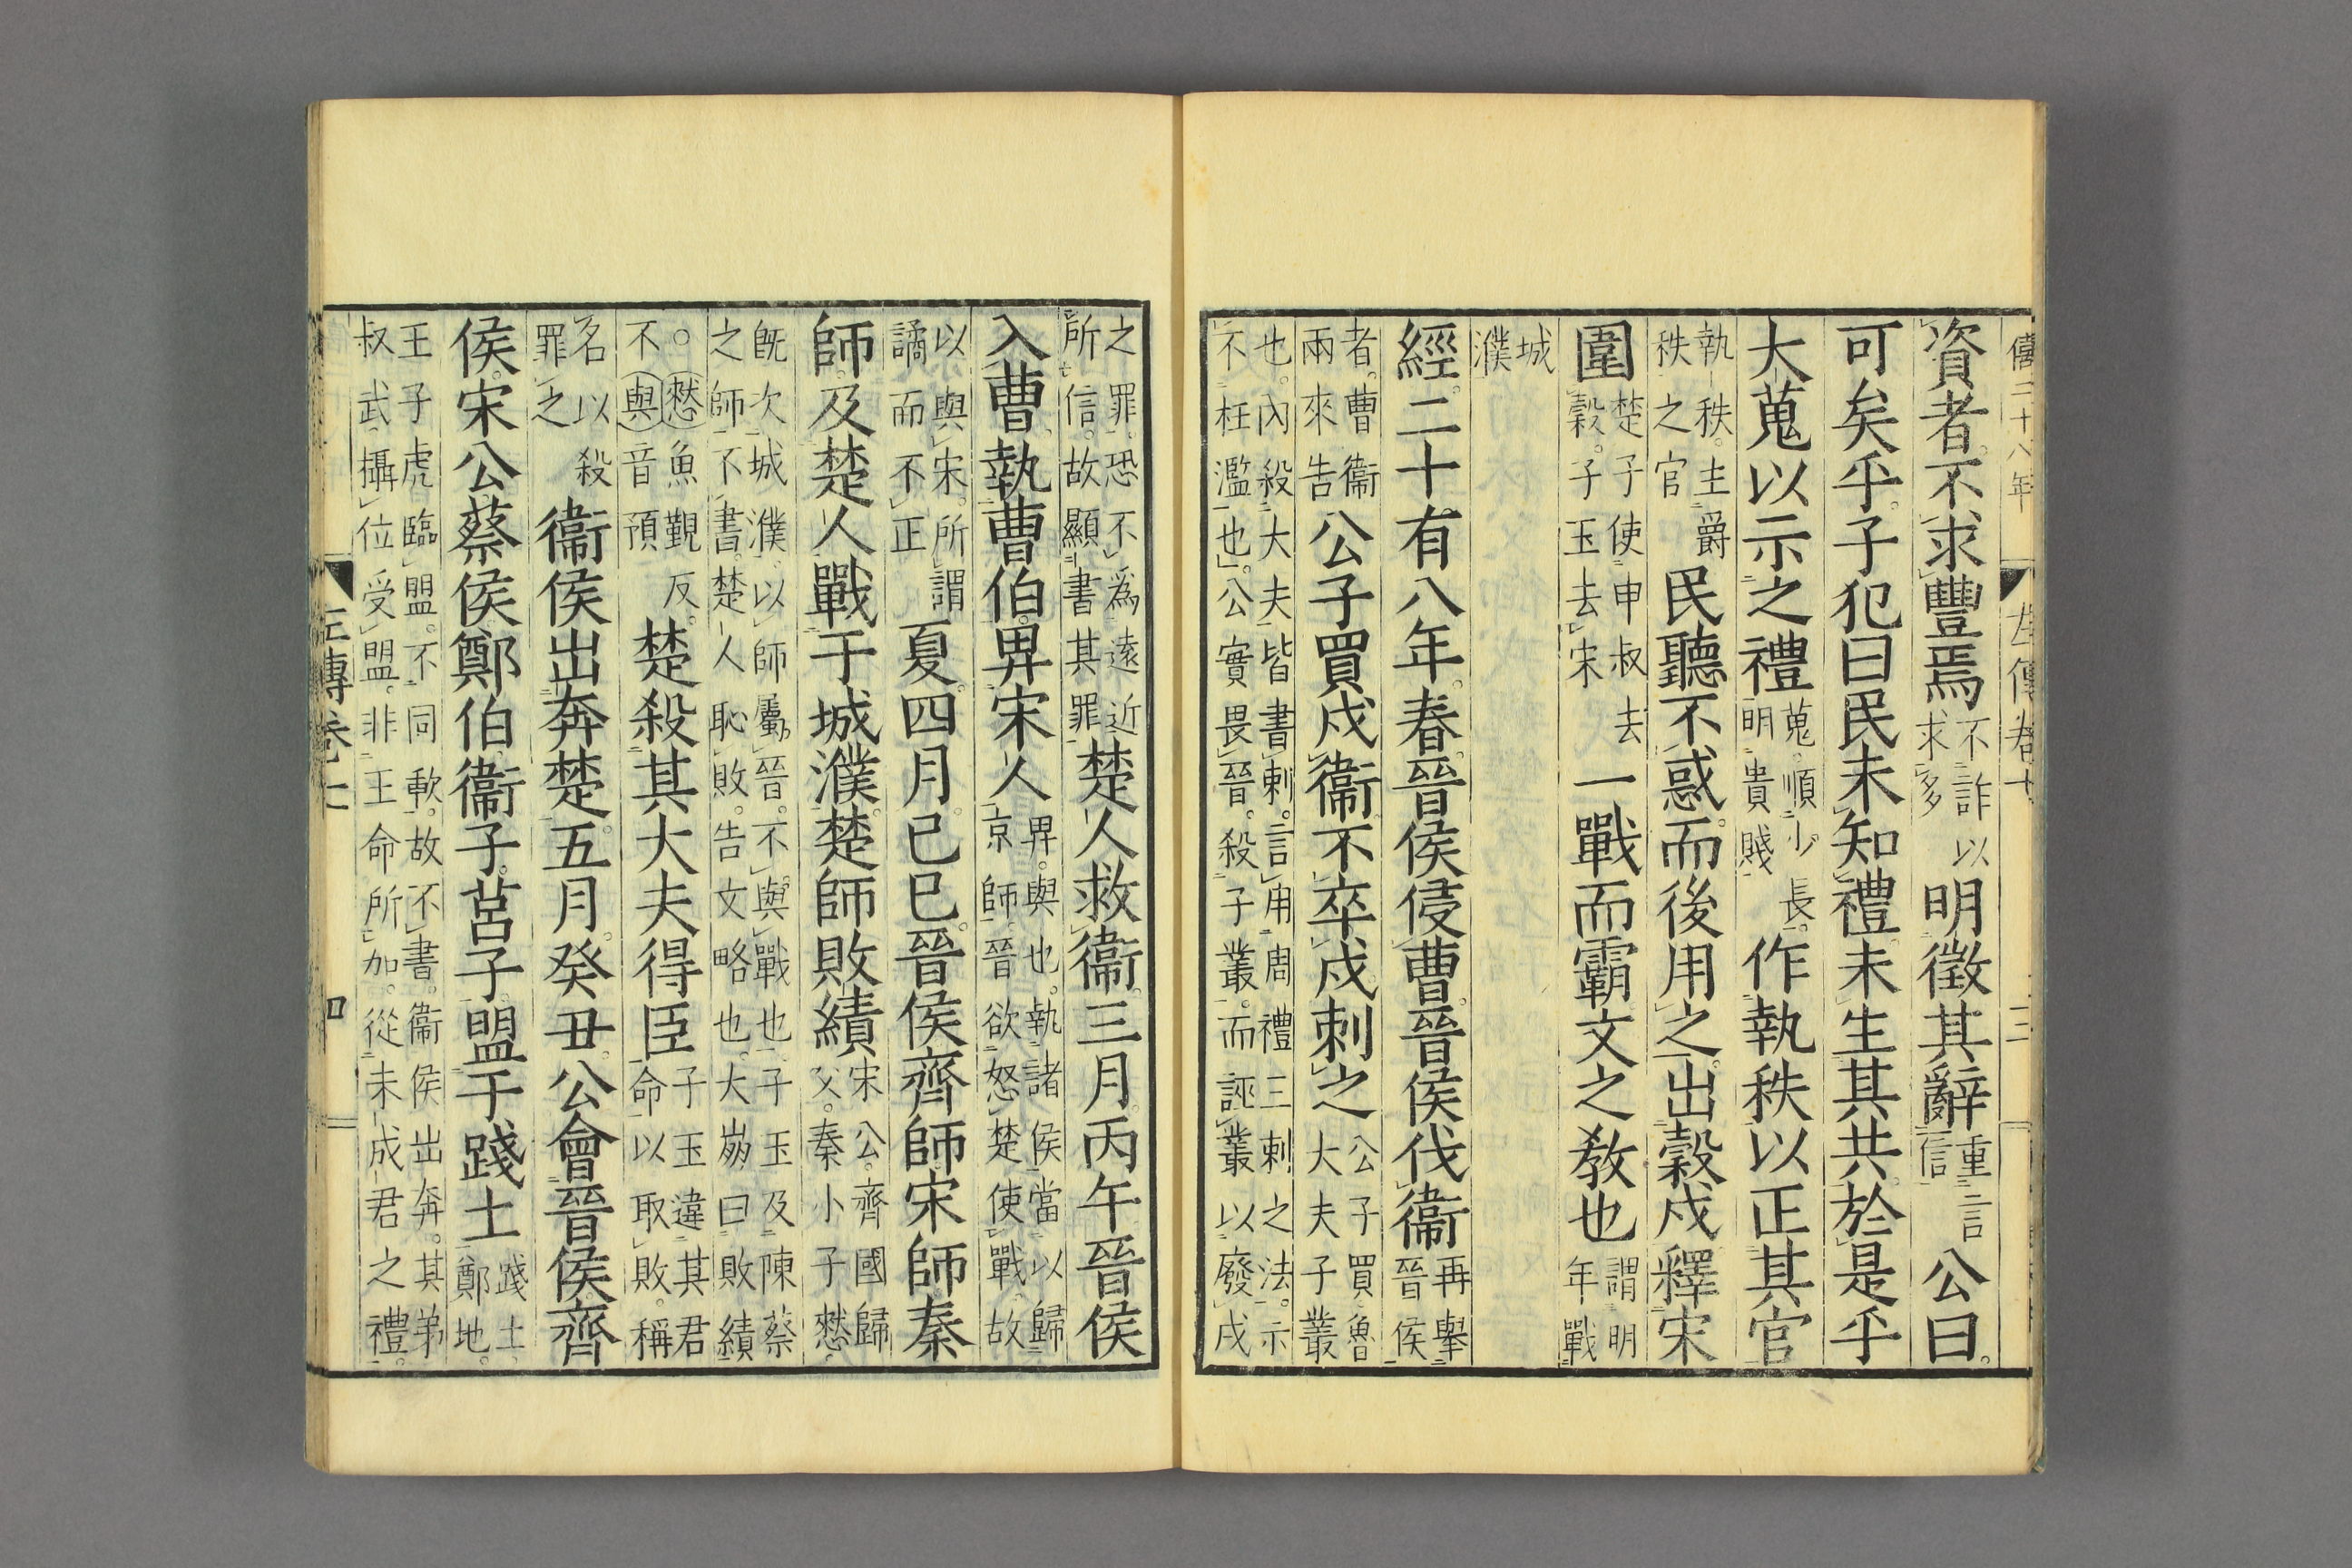 資者。不求豐焉不詐以求多明徵其辭重言信公曰。
可矣乎。子犯曰民未知禮。未生其共。於是乎
大蒐以示之禮蒐。順少長。明貴賤作執秩以正其官
執秩。主爵秩之官民聽不惑。而後用之。出穀戍釋宋
圍楚子使申叔去穀。子玉去宋一戰而霸文之教也謂明年戰
城濮
經。二十有八年。春。晉侯侵曹。晉侯伐衞再舉晉侯
者。曹衞兩來告公子買戍衞。不卒戍刺之公子買魯大夫子叢
也。內殺大夫皆書刺。言用周禮三刺之法。示不枉濫也。公實畏晉。殺子叢。而誣叢以廢戍
之罪。恐不爲遠近所信。故顯書其罪楚人救衞。三月丙午晉侯
入曹。執曹伯。畀宋人畀。與也。執諸侯當以歸京師。晉欲怒楚使戰。故
以與宋。所謂譎而不正夏。四月。己巳。晉侯齊師宋師秦
師。及楚人戰于城濮。楚師敗績宋公。齊國歸父。秦小子憖
旣次城濮。以師屬晉。不與戰也。子玉及陳蔡之師不書。楚人恥敗。告文略也。大崩曰敗績
。憖魚覲反。不與音預楚殺其大夫得臣子玉違其君命以取敗。稱
名以殺罪之衞侯出奔楚。五月。癸丑。公會晉侯。齊
侯。宋公。蔡侯。鄭伯衞子。莒子。盟于踐土踐土。鄭地。
王子虎臨盟。不同歃。故不書。衞侯出奔。其弟叔武攝位受盟。非王命所加。從未成君之禮。